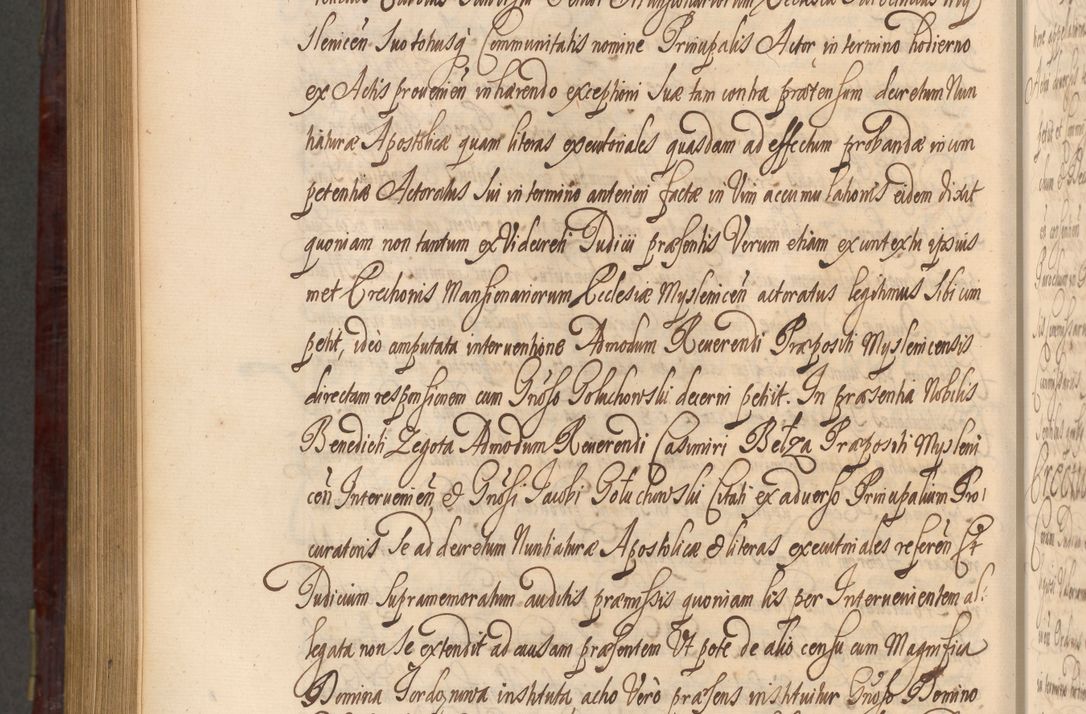 slenicen̄ Suo tohusq̃ Communitatis nomine Principalis Actor in termino hodierno
ex Actis provenien̄ inhærendo exceptioni suæ tam contra prætensum decretum Nun
tiaturæ Apostolicæ quam literas executoriales quasdam ad effectum probandæ incom
petentiæ Actoratus sui in termino anteriori factæ in Vim accumulationis eidem dixit
quoniam non tantum ex Vi decreti Judicii præsentis Verum etiam ex contextu ipsius
met Erectionis Mansionariorum Ecclesiæ Myslenicen̄ actoratus legitimus sibi com
petit, ideò amputata interventione Admodum Reverendi Præpositi Myslenicensis
directam responsionem cum Gnōso Goluchowski decerni petiit. In præsentia Nobilis
Benedicti Zegota Admodum Reverendi Casimiri Bełza Præpositi Mysleni
cen̄ Intervenien̄, & Gnōsi Jacobi Gołuchowski Citati ex adverso Principalium Pro
curatoris se ad decretum Nuntiaturæ Apostolicæ & literas executoriales referen̄ Et
Judicium supramemoratum auditis præmissis quoniam lis per Intervenientem al
legata non se extendit ad causam præsentem Ut pote de alio censu cum Magnifica
Domina Jordanowa instituta actio Verò præsens instituitur Gnōso Domino